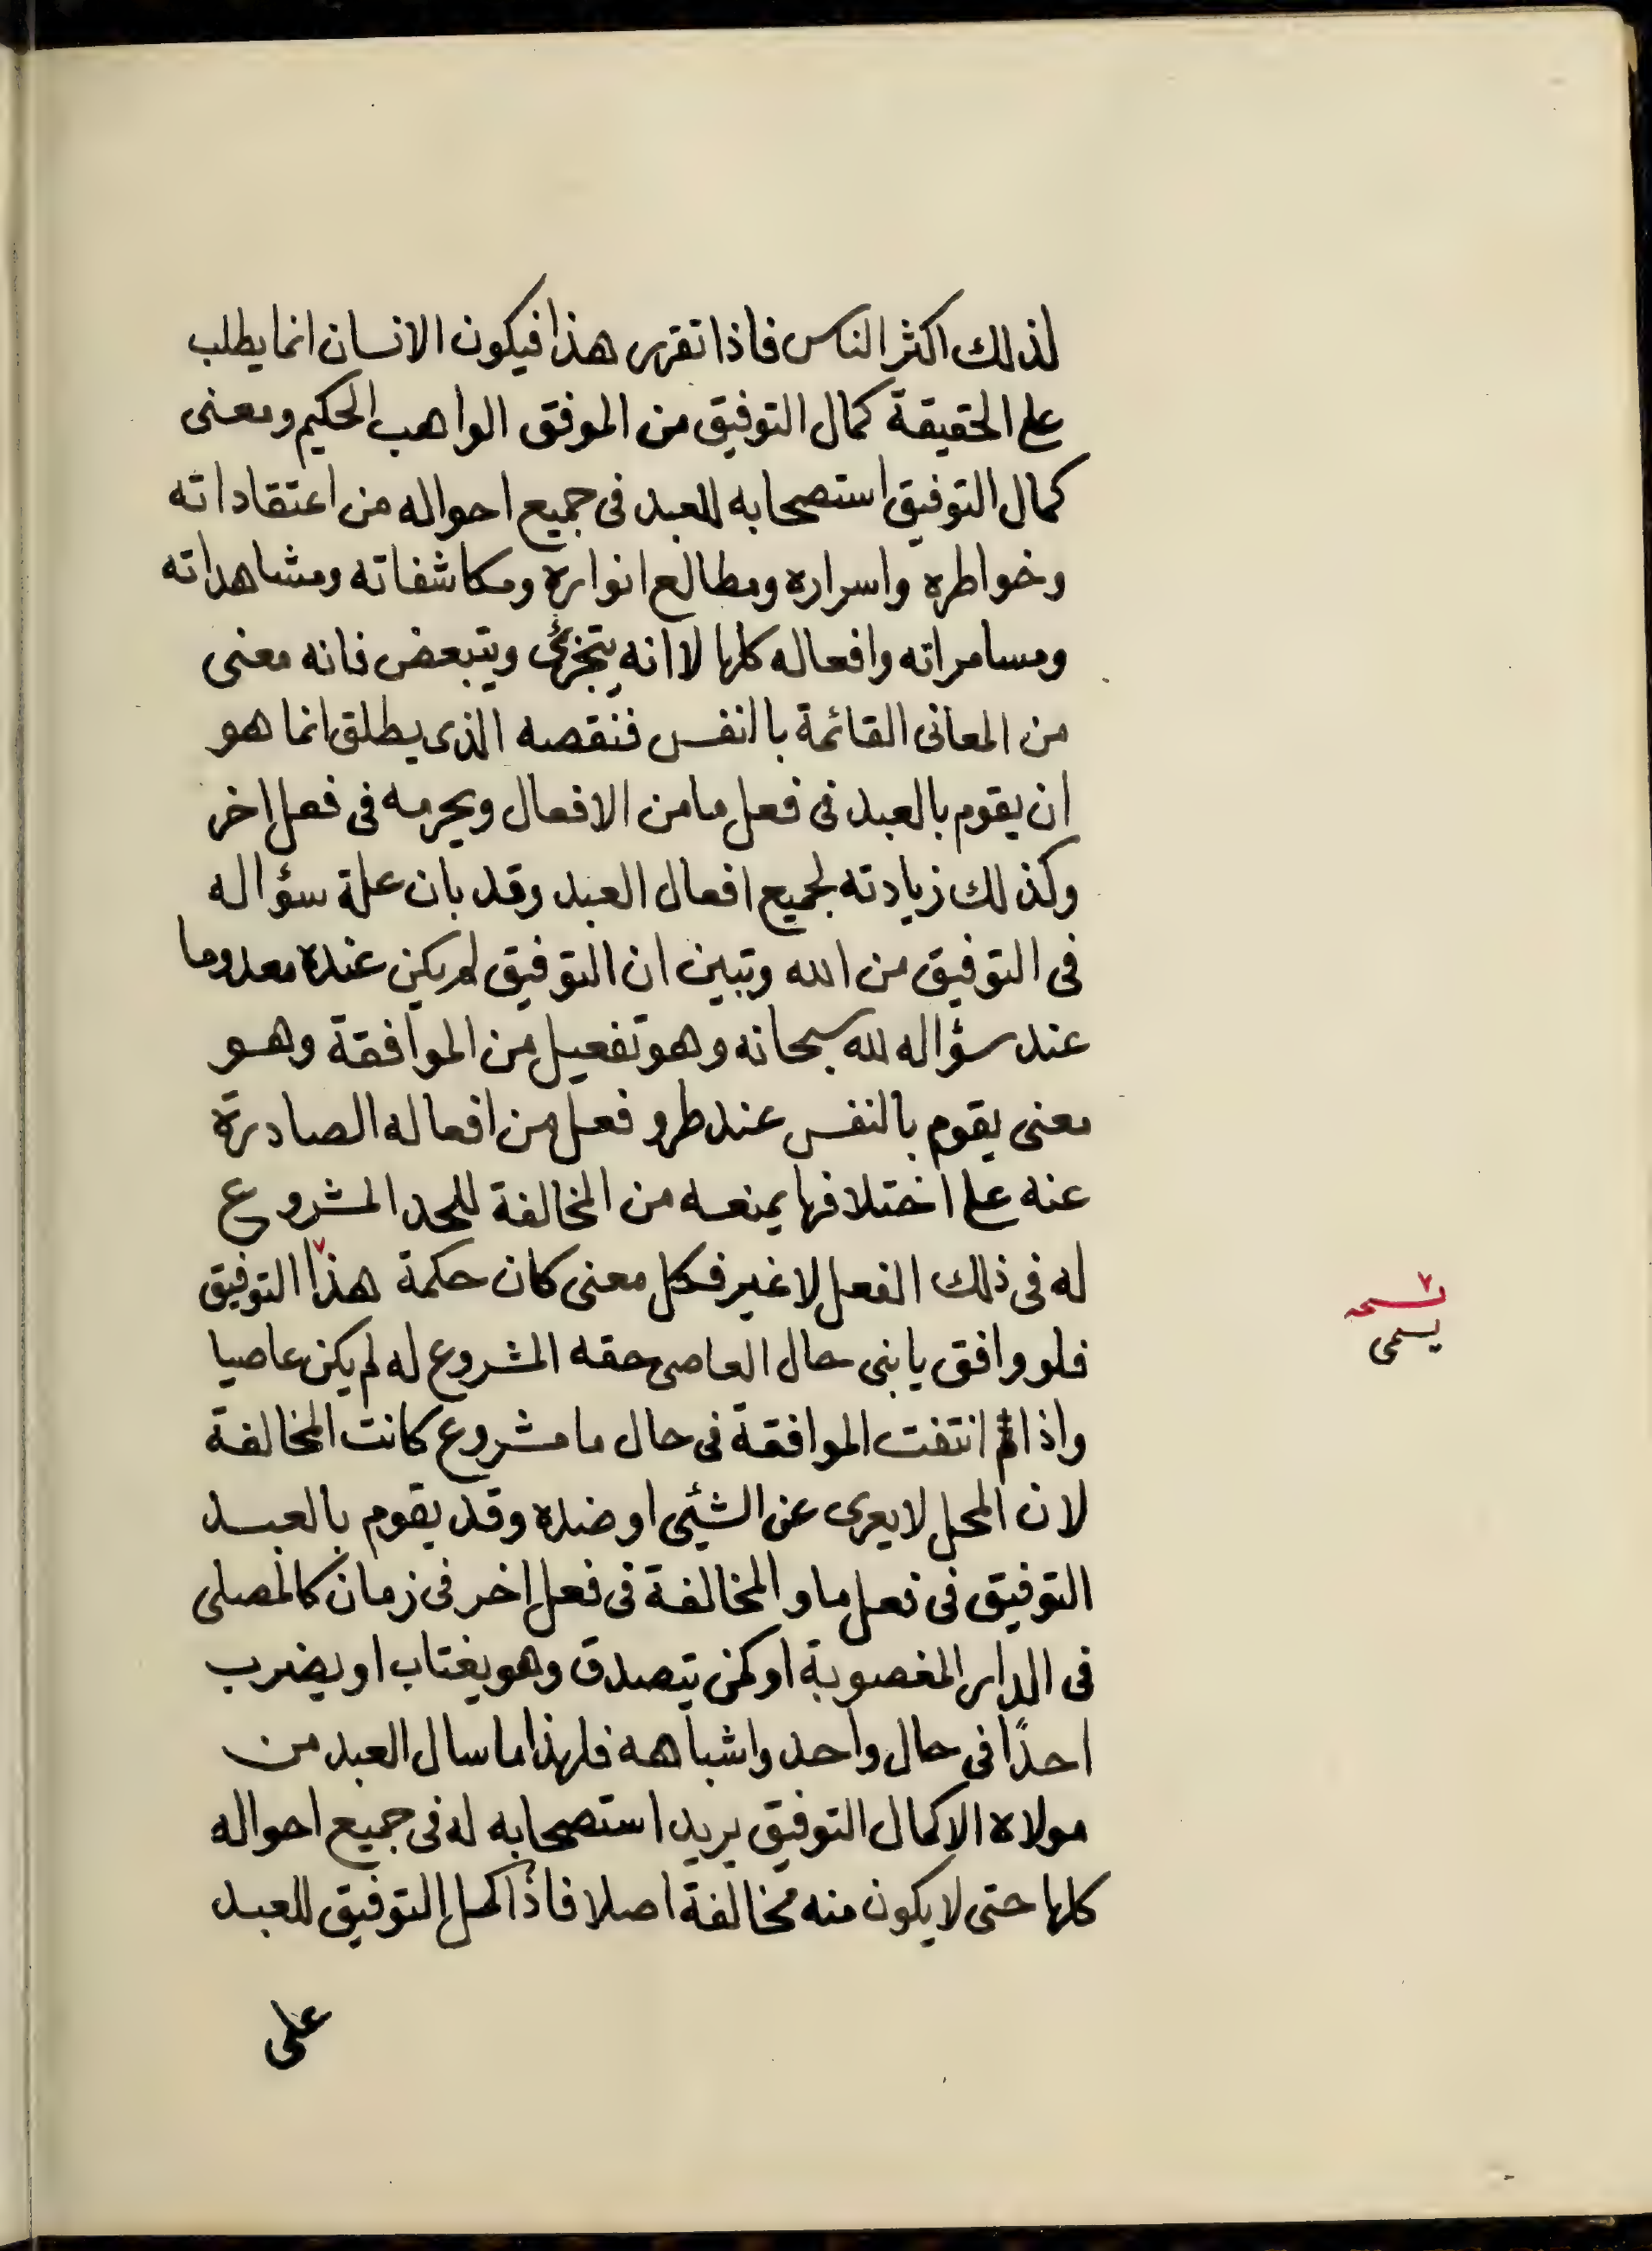 لذلك اكثر الناس فاذا تقرر هذا فيكون الانسان انما يطلب
على الحقيقة كمال التوفيق من الموفق الواهب الحكيم ومعنى
كمال التوفيق استصحابه للعبد فى جميع احواله من اعتقاداته
وخواطره واسراره ومطالع انواره ومكاشفاته ومشاهداته
ومسامراته وافعاله كلها لا انه يتجزئ ويتبعض فانه معنى
من المعانى القائمة بالنفس فنقصه الذى يطلق انما هو
ان يقوم بالعبد فى فعل ما من الافعال ويحرمه فى فعل اخر
وكذلك زيادته لجميع افعال العبد وقد بان علة سؤاله
فى التوفيق من الله وتبين ان التوفيق لم يكن عنده معدوما
عند سؤاله لله سبحانه وهو تفعيل من الموافقة وهو
معنى يقوم بالنفس عند طرو فعل من افعاله الصادرة
عنه على اختلافها يمنعه من المخالفة للحد المشروع
له فى ذلك الفعل لا غير فكل معنى كان حكمة هذا ٧ التوفيق
فلو وافق يا بنى حال العاصى حقه المشروع له لم يكن عاصيا
واذا انتفت الموافقة فى حال ما مشروع كانت المخالفة
لان المحل لا يعرى عن الشئى او ضده وقد يقوم بالعبد
التوفيق فى فعل ما والمخالفة فى فعل اخر فى زمان كالمصلى
فى الدار المغصوبة او كمن يتصدق وهو يغتاب او يضرب
احدًا فى حال واحد واشباهه فلهذا ما سال العبد من
مولاه الا كمال التوفيق يريد استصحابه له فى جميع احواله
كلها حتى لا يكون منه مخالفة اصلا فاذا كمل التوفيق للعبد
على
٧
نسخه
يسمى